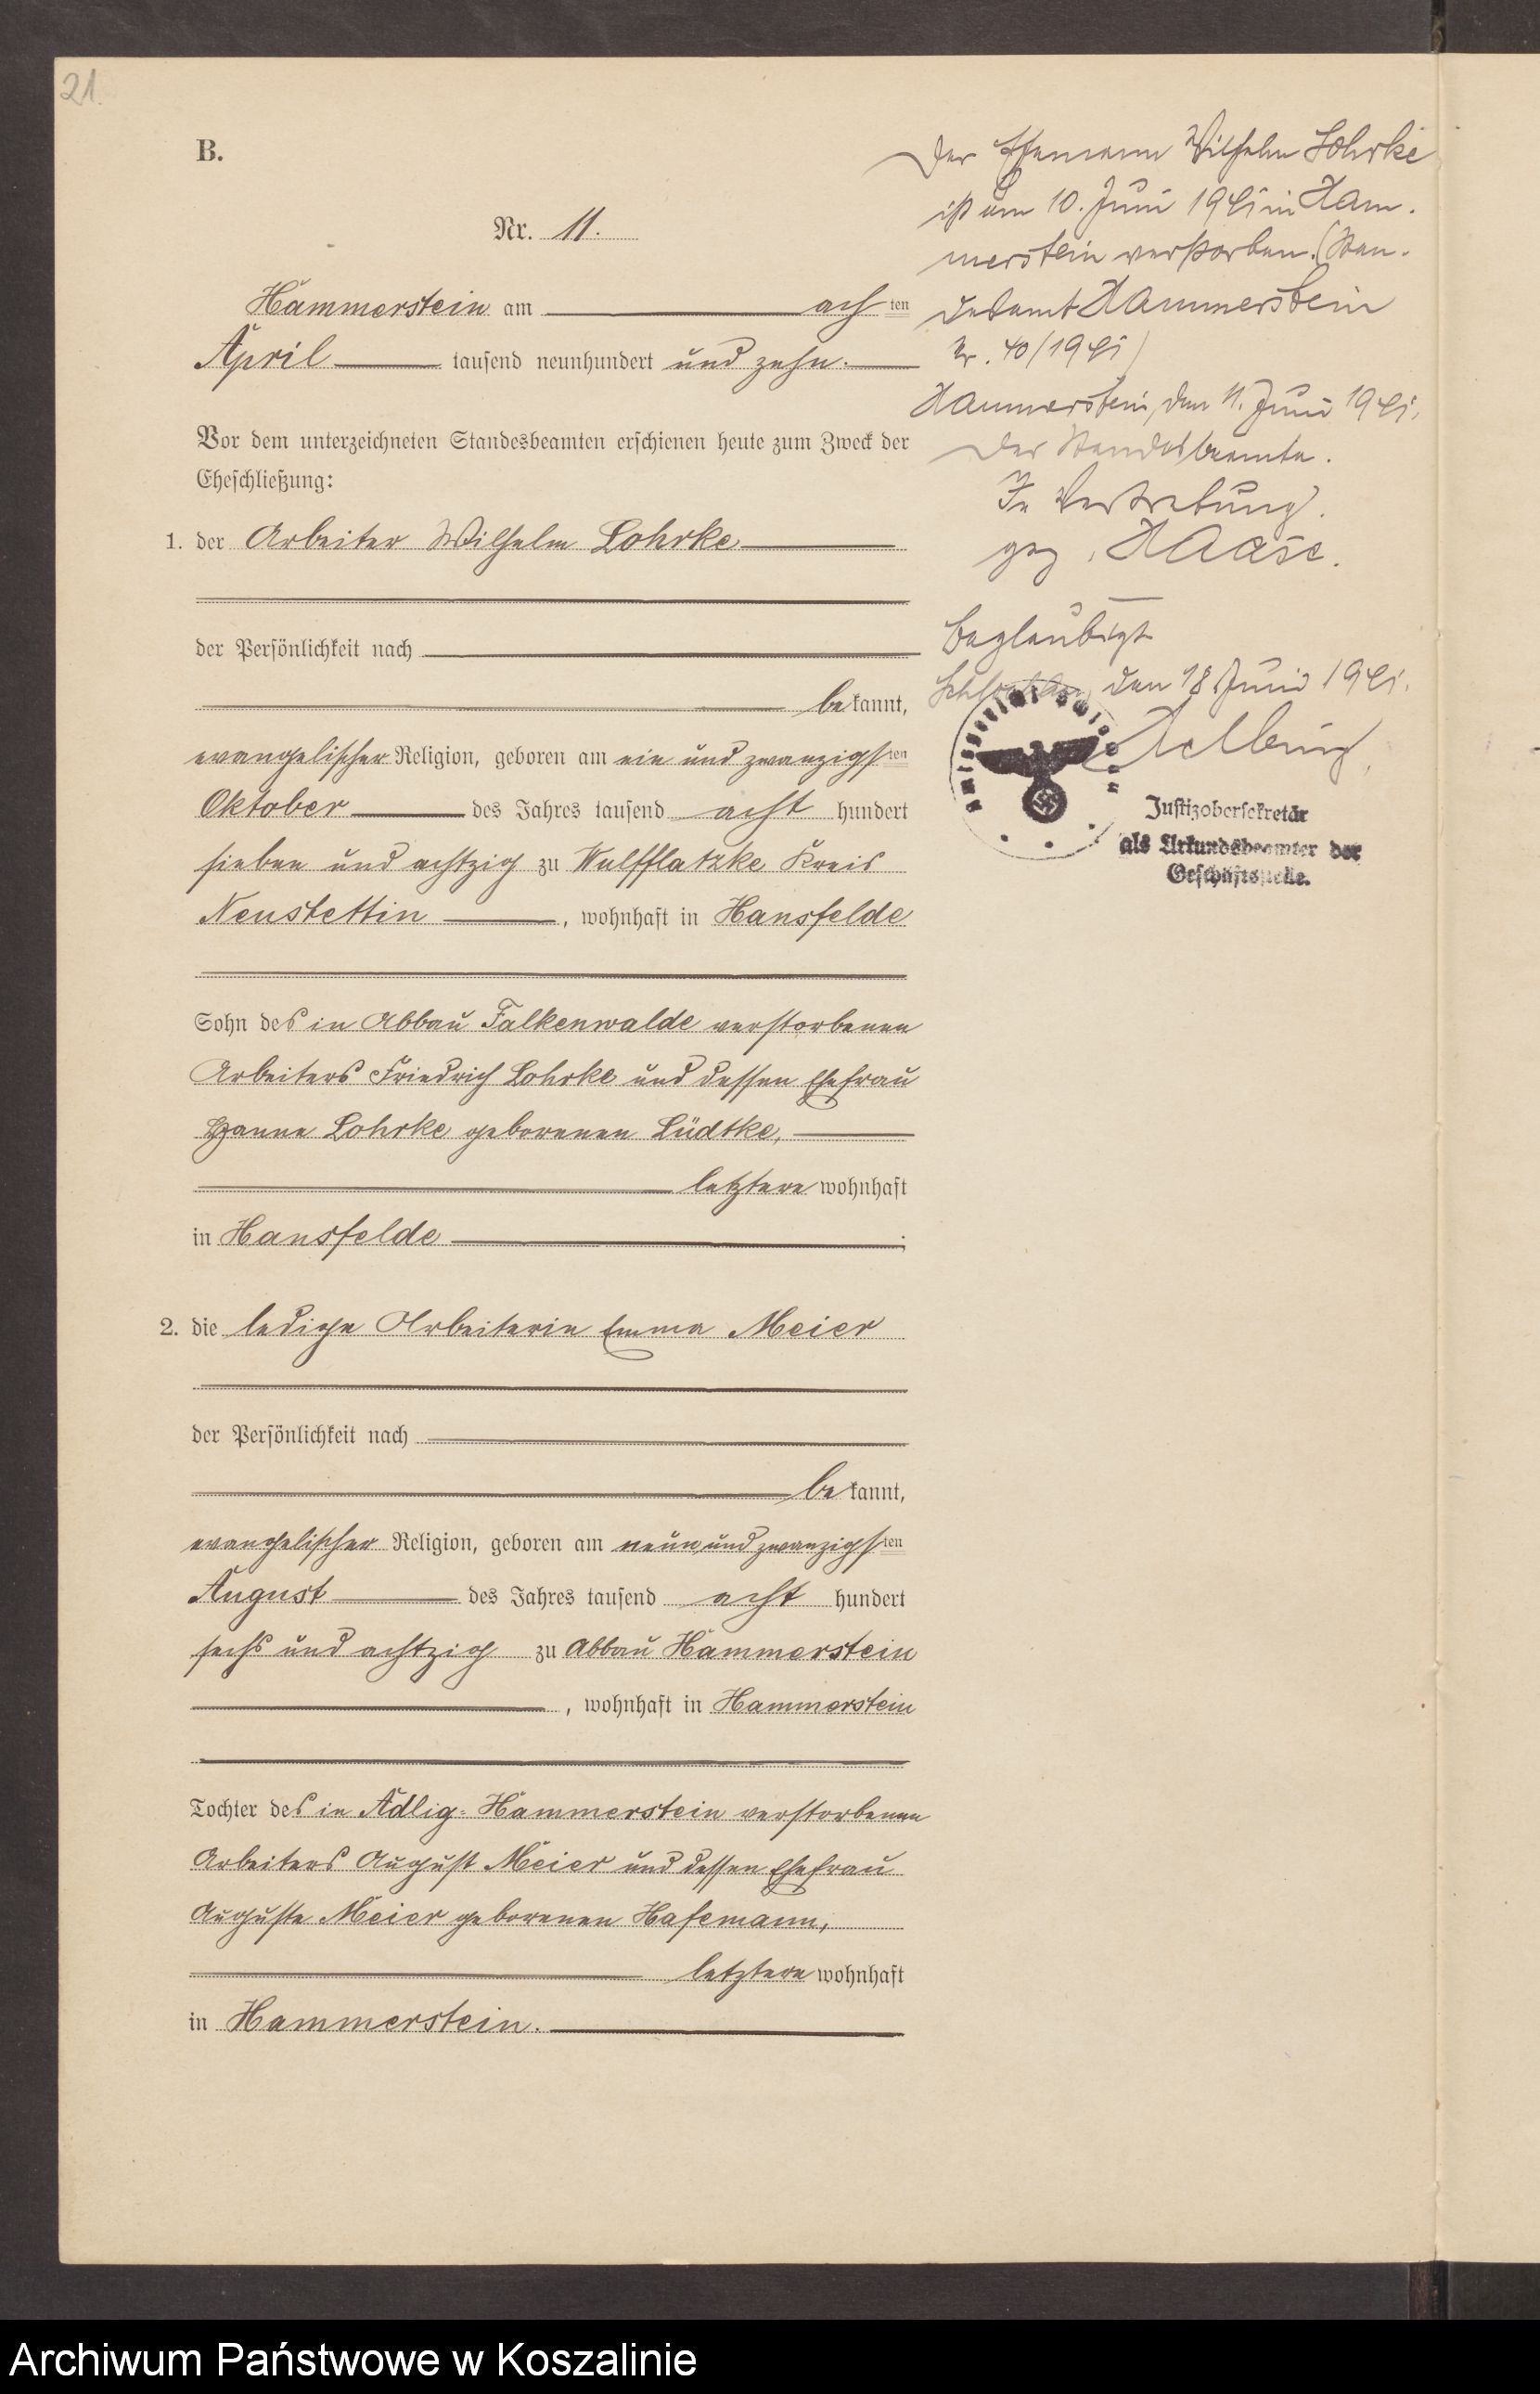 21.
B.
Nr. 11.
Hammerstein am achten
April tausend neunhundert und zehn.
Vor dem unterzeichneten Standesbeamten erschienen heute zum Zweck der
Eheschließung:
1. der Arbeiter Wilhelm Lohrke
der Persönlichkeit nach
bekannt,
evangelischer Religion, geboren am ein und zwanzigsten
Oktober des Jahres tausend acht hundert
sieben und achtzig zu Wulfflatzke Kreis
Neustettin, wohnhaft in Hansfelde
Sohn des in Abbau Falkenwalde verstorbenen
Arbeiters Friedrich Lohrke und dessen Ehefrau
Hanne Lohrke geborenen Lüdtke,
letztere wohnhaft
in Hansfelde;
2. die ledige Arbeiterin Emma Meier
der Persönlichkeit nach
bekannt,
evangelischer Religion, geboren am neun und zwanzigsten
August des Jahres tausend acht hundert
sechs und achtzig zu Abbau Hammerstein
, wohnhaft in Hammerstein
Tochter des in Adlig-Hammerstein verstorbenen
Arbeiters August Meier und dessen Ehefrau
Auguste Meier geborenen Hasemann,
letztere wohnhaft
in Hammerstein.
Der Ehemann Wilhelm Lohrke
ist am 10. Juni 1941 in Ham-
merstein verstorben. (Stan-
desamt Hammerstein
Nr. 40/1941)
Hammerstein, den 11. Juni 1941.
Der Standesbeamte.
In Vertretung.
gez. Haase.
Beglaubigt
den 18 Juni 1941.
Justizobersekretär
als Urkundsbeamter der
Geschäftsstelle.
Archiwum Państwowe w Koszalinie